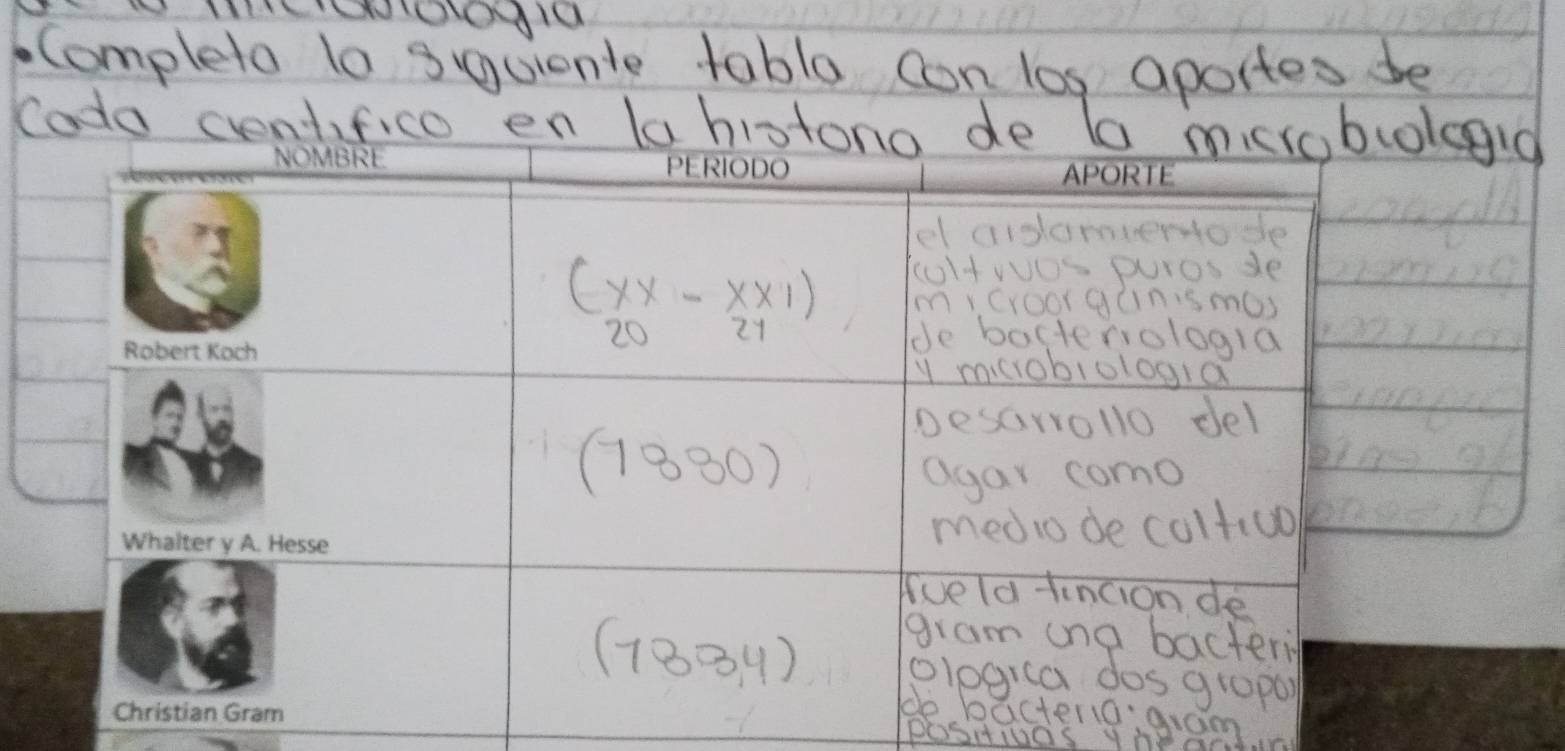 •Completa la siguiente tabla con los aportes de
cada cientifico en la historia de la microbiologia
NOMBRE PERIODO APORTE
Robert Koch
(XX - XXI)
20 21
el aislamiento de
cultivos puros de
microorganismos
de bacteriologia
y microbiologia
Whalter y A. Hesse
(1880)
Desarrollo del
agar como
medio de cultivo
Christian Gram
(1884)
fue la tincion de
gram una bacteri
ologica dos grupos
de bacteria: gram
positivas y